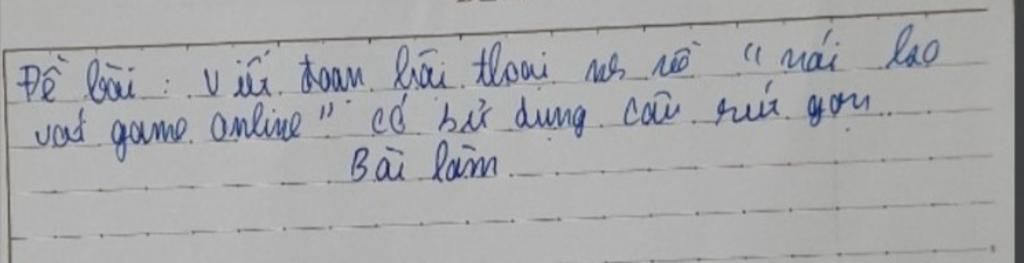 Đề bài : Viết đoạn hội thoại nói về "mái lao
vat game online" có sử dụng câu rút gọn
Bài làm